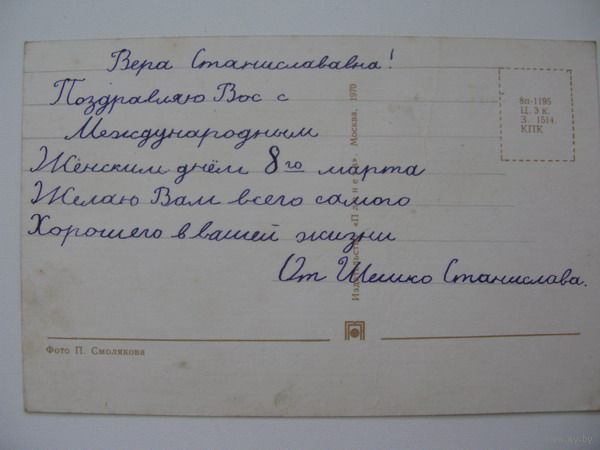 Вера Станислававна!
Поздравляю Вос с
Международным
Женским днём 8го марта
Желаю Вам всего самого
Хорошего в вашей жизни
От Шешко Станислава.
8а-1195
Ц. 3 к.
З. 1514.
КПК
Издательство «Планета». Москва, 1970
Фото П. Смолякова